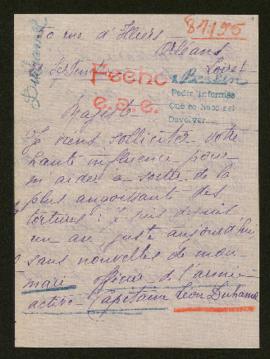 50 rue d'Illiers
Orléans
Loiret
87/95
Duhamel
Fecho
e.o.e.
Pedir informes
Que no necesei
Devolver
Majesté
Je viens solliciter votre
haute influence pour
m'aider à sortir de la
plus angoissante des
tortures : je suis depuis
un an juste aujourd'hui
sans nouvelles de mon
mari officier de l'armée
active Capitaine Léon Duhamel